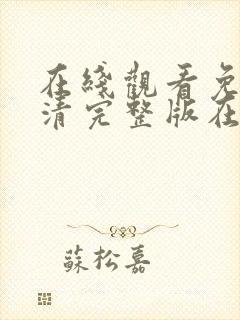 在綫觀看免
清完整版在
蘇松嘉